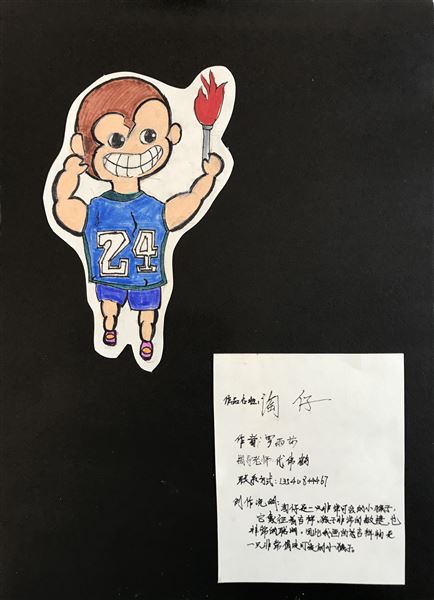 24
作品名称：淘仔
作者：罗雨
指导老师
联系方式：13540844467
创作说明：淘仔是一只非常可爱的小猴子，
它象征着吉祥，猴子非常的敏捷，也
非常的聪明，因此我画的吉祥物是
一只非常俏皮可爱的小猴子。